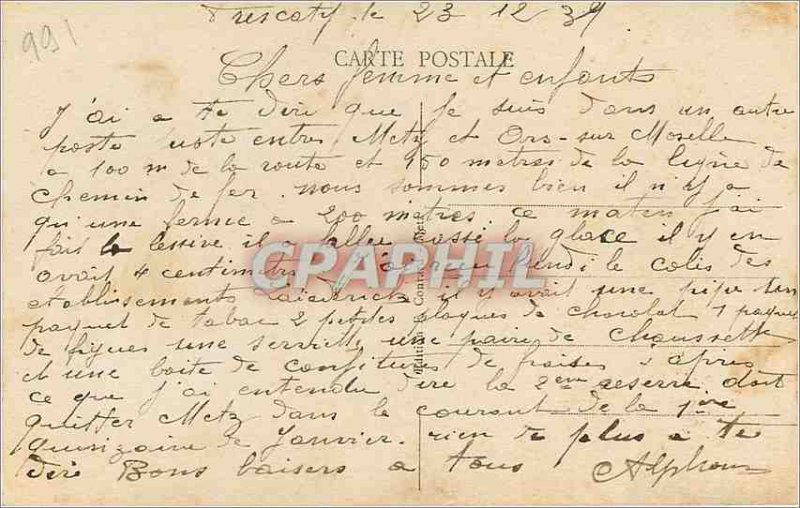 Frescaty le 23 12 39
991
CARTE POSTALE
Chers femme et enfants
J'ai a te dire que je suis dans un autre
poste juste entre Metz et Ars-sur Moselle
a 100 m de la route et 150 metres de la ligne de
chemin de fer. nous sommes bien il n'y a
qu'une ferme a 200 metres. ce matin j'ai
fait la lessive il a fallu cassé la glace il y en
avait 4 centimetres j'ai reçu lundi le colis des
etablissements il y avait une pipe un
paquet de tabac 2 petites plaques de chocolat 1 paquet
de figues une serviette une paire de chaussettes
et une boite de confitures de fraises d'apres
ce que j'ai entendu dire la 2eme reserve doit
quitter Metz dans le courant de la 1ere
quinzaine de Janvier. rien de plus a te
dire Bons baisers a tous Alphonse
CPAPHIL